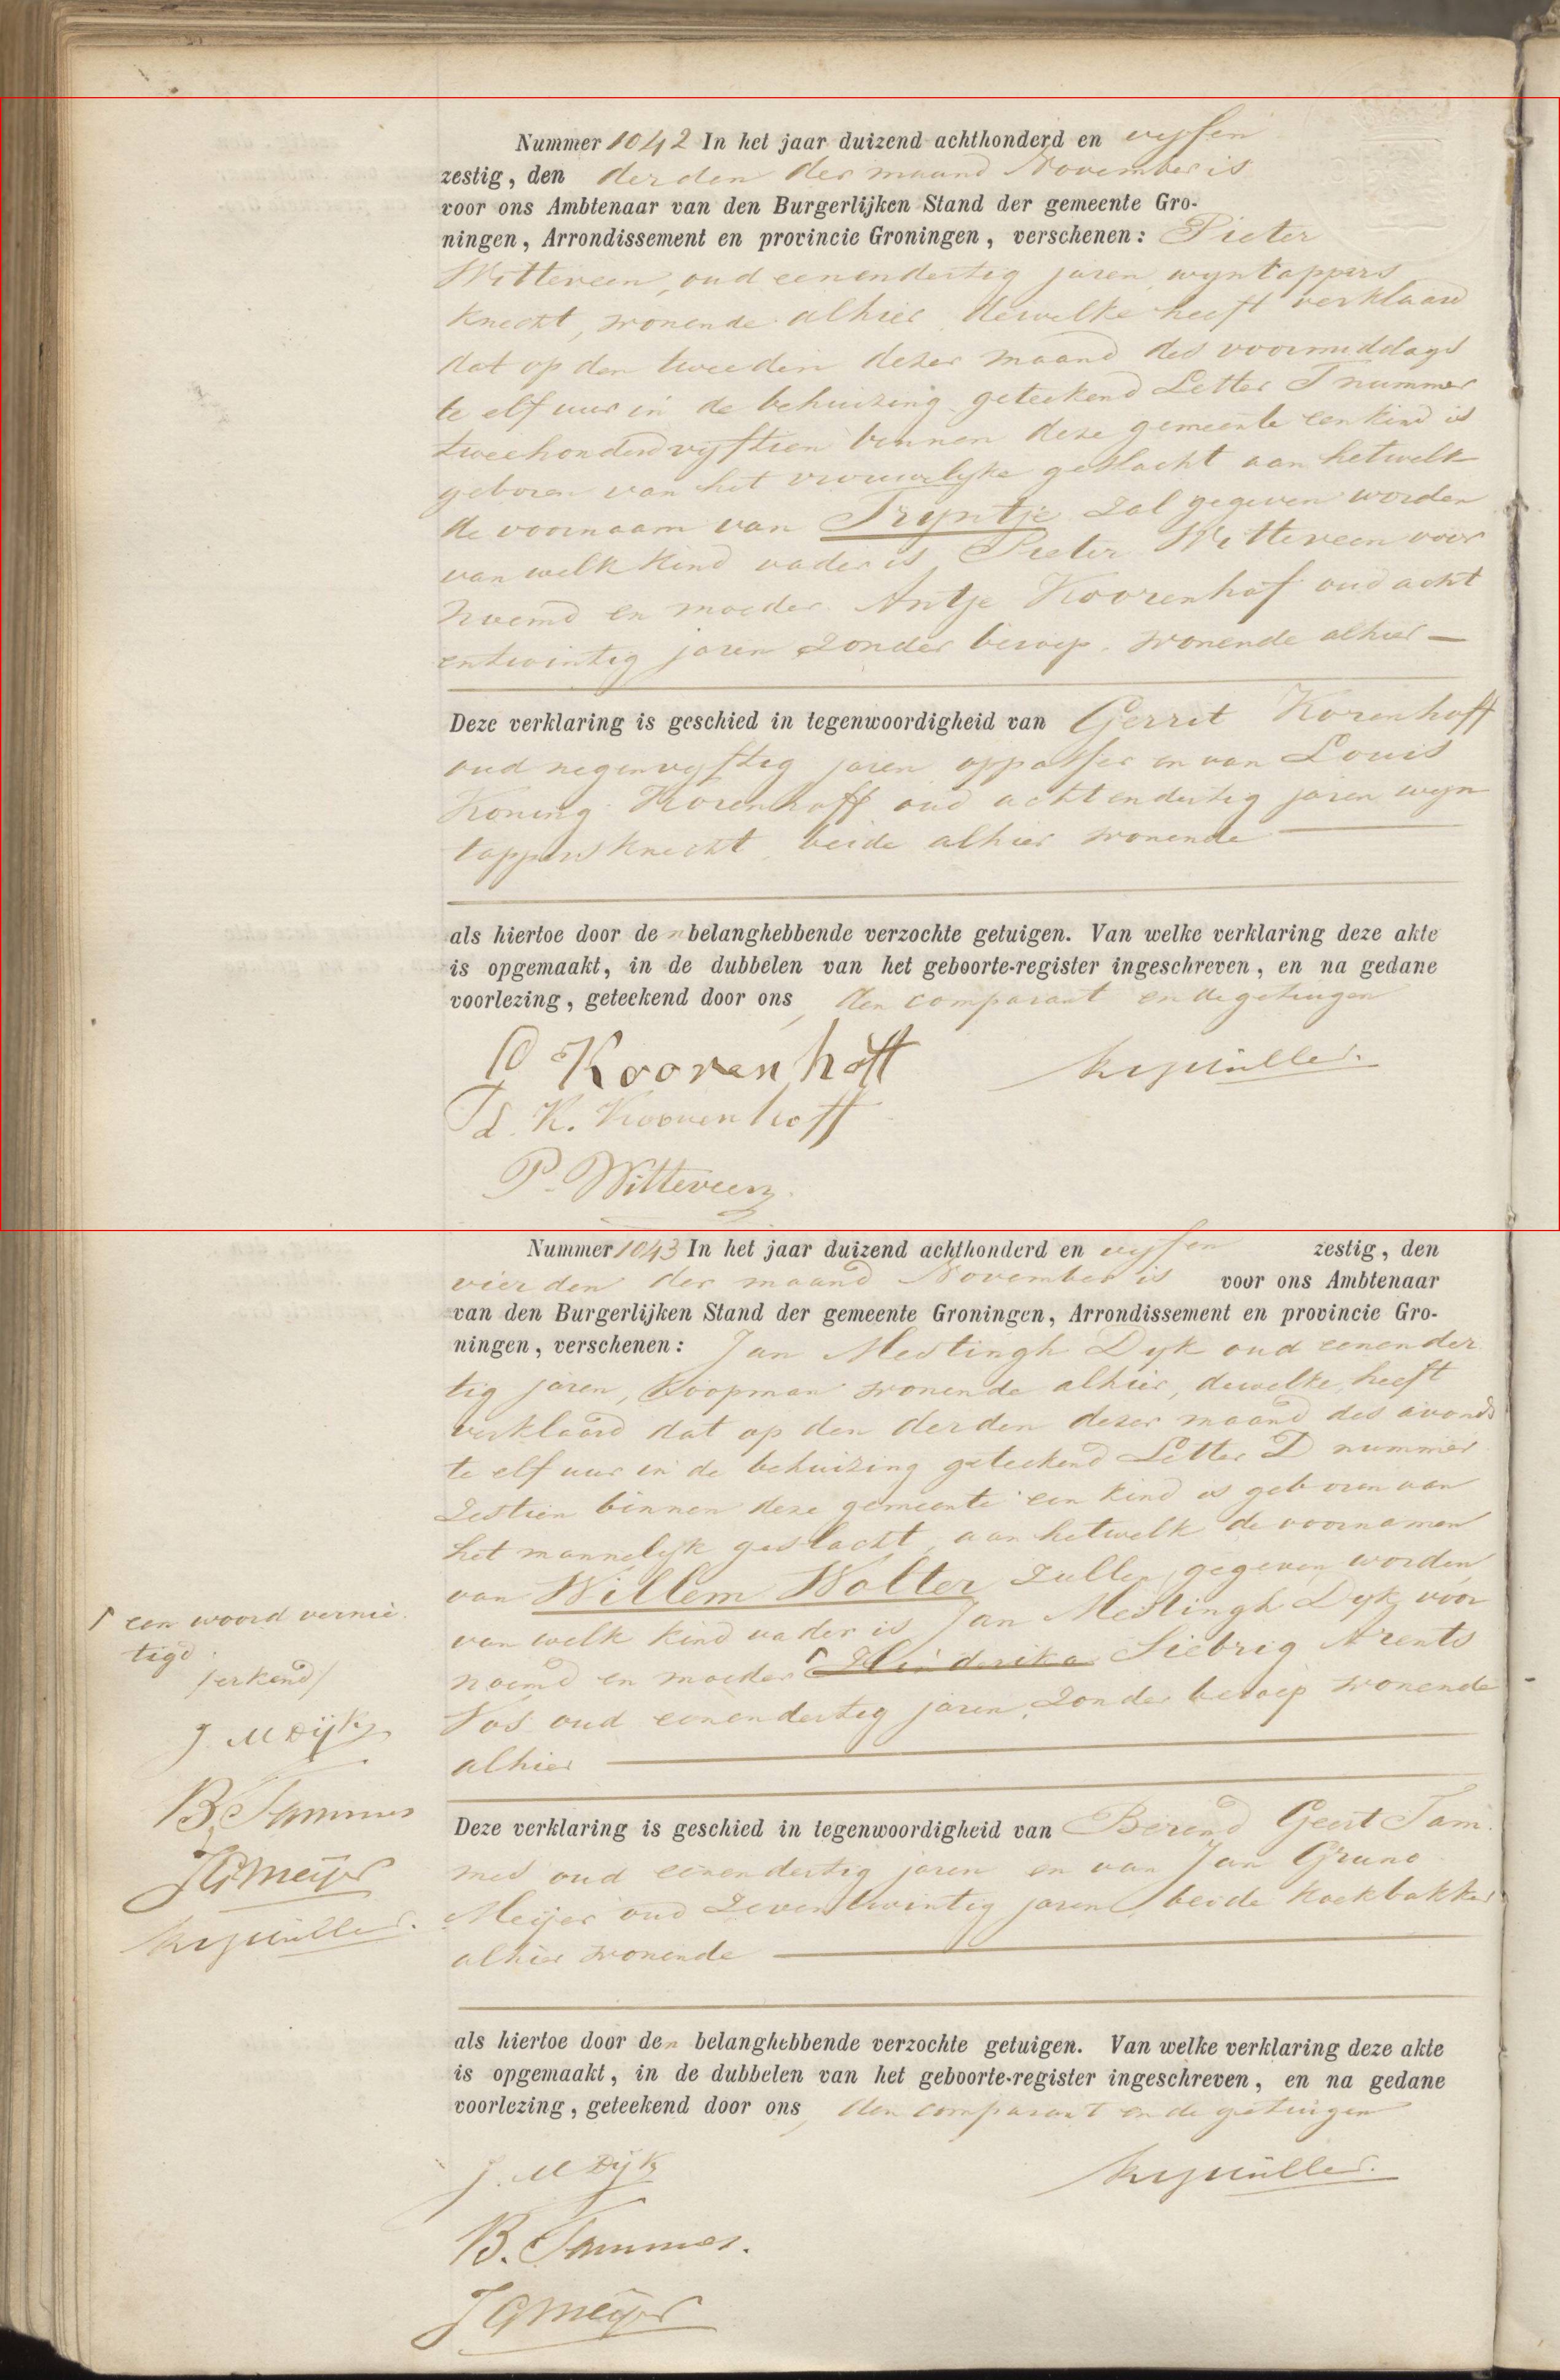 Nummer 1042 In het jaar duizend achthonderd en vyfen
zestig, den derden der maand November is
voor ons Ambtenaar van den Burgerlijken Stand der gemeente Gro-
ningen, Arrondissement en provincie Groningen, verschenen: Pieter
Witteveen, oud eenendertig jaren, wyntappers
knecht, wonende alhier, dewelke heeft verklaard
dat op den tweeden dezer maand des voormiddags
te elf uur in de behuizing geteekend Letter T nummer
tweehonderdvyftien binnen deze gemeente een kind is
geboren van het vrouwelyke geslacht aan hetwelk
de voornaam van Tryntje zal gegeven worden
van welk kind vader is Pieter Witteveen voor
noemd en moeder Antje Koorenhof oud acht
entwintig jaren zonder beroep, wonende alhier —
Deze verklaring is geschied in tegenwoordigheid van Gerrit Korenhoff
oud negenvyftig jaren oppasser en van Louis
Koning Korenhoff oud achtendertig jaren wyn
tappersknecht, beide alhier wonende
als hiertoe door den belanghebbende verzochte getuigen. Van welke verklaring deze akte
is opgemaakt, in de dubbelen van het geboorte-register ingeschreven, en na gedane
voorlezing, geteekend door ons, den comparant en de getuigen
Koorenhoff
L. K. Koorenhoff
P. Witteveen
Nummer 1043 In het jaar duizend achthonderd en vyfen zestig, den
vierden der maand November is voor ons Ambtenaar
van den Burgerlijken Stand der gemeente Groningen, Arrondissement en provincie Gro-
ningen, verschenen: Jan Mestingh Dyk oud eenender
tig jaren, Koopman wonende alhier, dewelke heeft
verklaard dat op den derden dezer maand des avonds
te elf uur in de behuizing geteekend Letter D nummer
zestien binnen deze gemeente een kind is geboren van
het mannelyk geslacht, aan hetwelk de voornamen
van Willem Wolter zullen gegeven worden
van welk kind vader is Jan Mestingh Dyk voor
noemd en moeder Hinderika Siebrig Arents
Vos oud eenendertig jaren, zonder beroep wonende
alhier
een woord vernie
tigd
/erkend/
J M Dijk
B. Tammes
JGMeijer
Müller
Deze verklaring is geschied in tegenwoordigheid van Berend Geert Tam
mes oud eenendertig jaren en van Jan Gruno
Meijer oud zeventwintig jaren beide koekbakker
alhier wonende
als hiertoe door den belanghebbende verzochte getuigen. Van welke verklaring deze akte
is opgemaakt, in de dubbelen van het geboorte-register ingeschreven, en na gedane
voorlezing, geteekend door ons, den comparant en de getuigen
J. M Dijk
Müller
B. Tammes.
JGMeijer